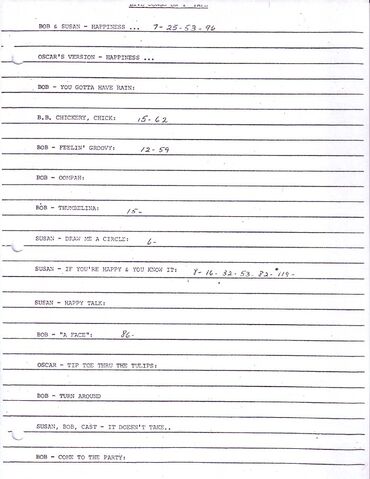 BOB & SUSAN - HAPPINESS ... 7-25-53-96
OSCAR'S VERSION - HAPPINESS ...
BOB - YOU GOTTA HAVE RAIN:
B.B. CHICKERY, CHICK: 15-62
BOB - FEELIN' GROOVY: 12-59
BOB - OOMPAH:
BOB - THUMBELINA: 15-
SUSAN - DRAW ME A CIRCLE: 6-
SUSAN - IF YOU'RE HAPPY & YOU KNOW IT: 8-16-32-53-82-119-
SUSAN - HAPPY TALK:
BOB - "A FACE": 86-
OSCAR - TIP TOE THRU THE TULIPS:
BOB - TURN AROUND
SUSAN, BOB, CAST - IT DOESN'T TAKE..
BOB - COME TO THE PARTY: